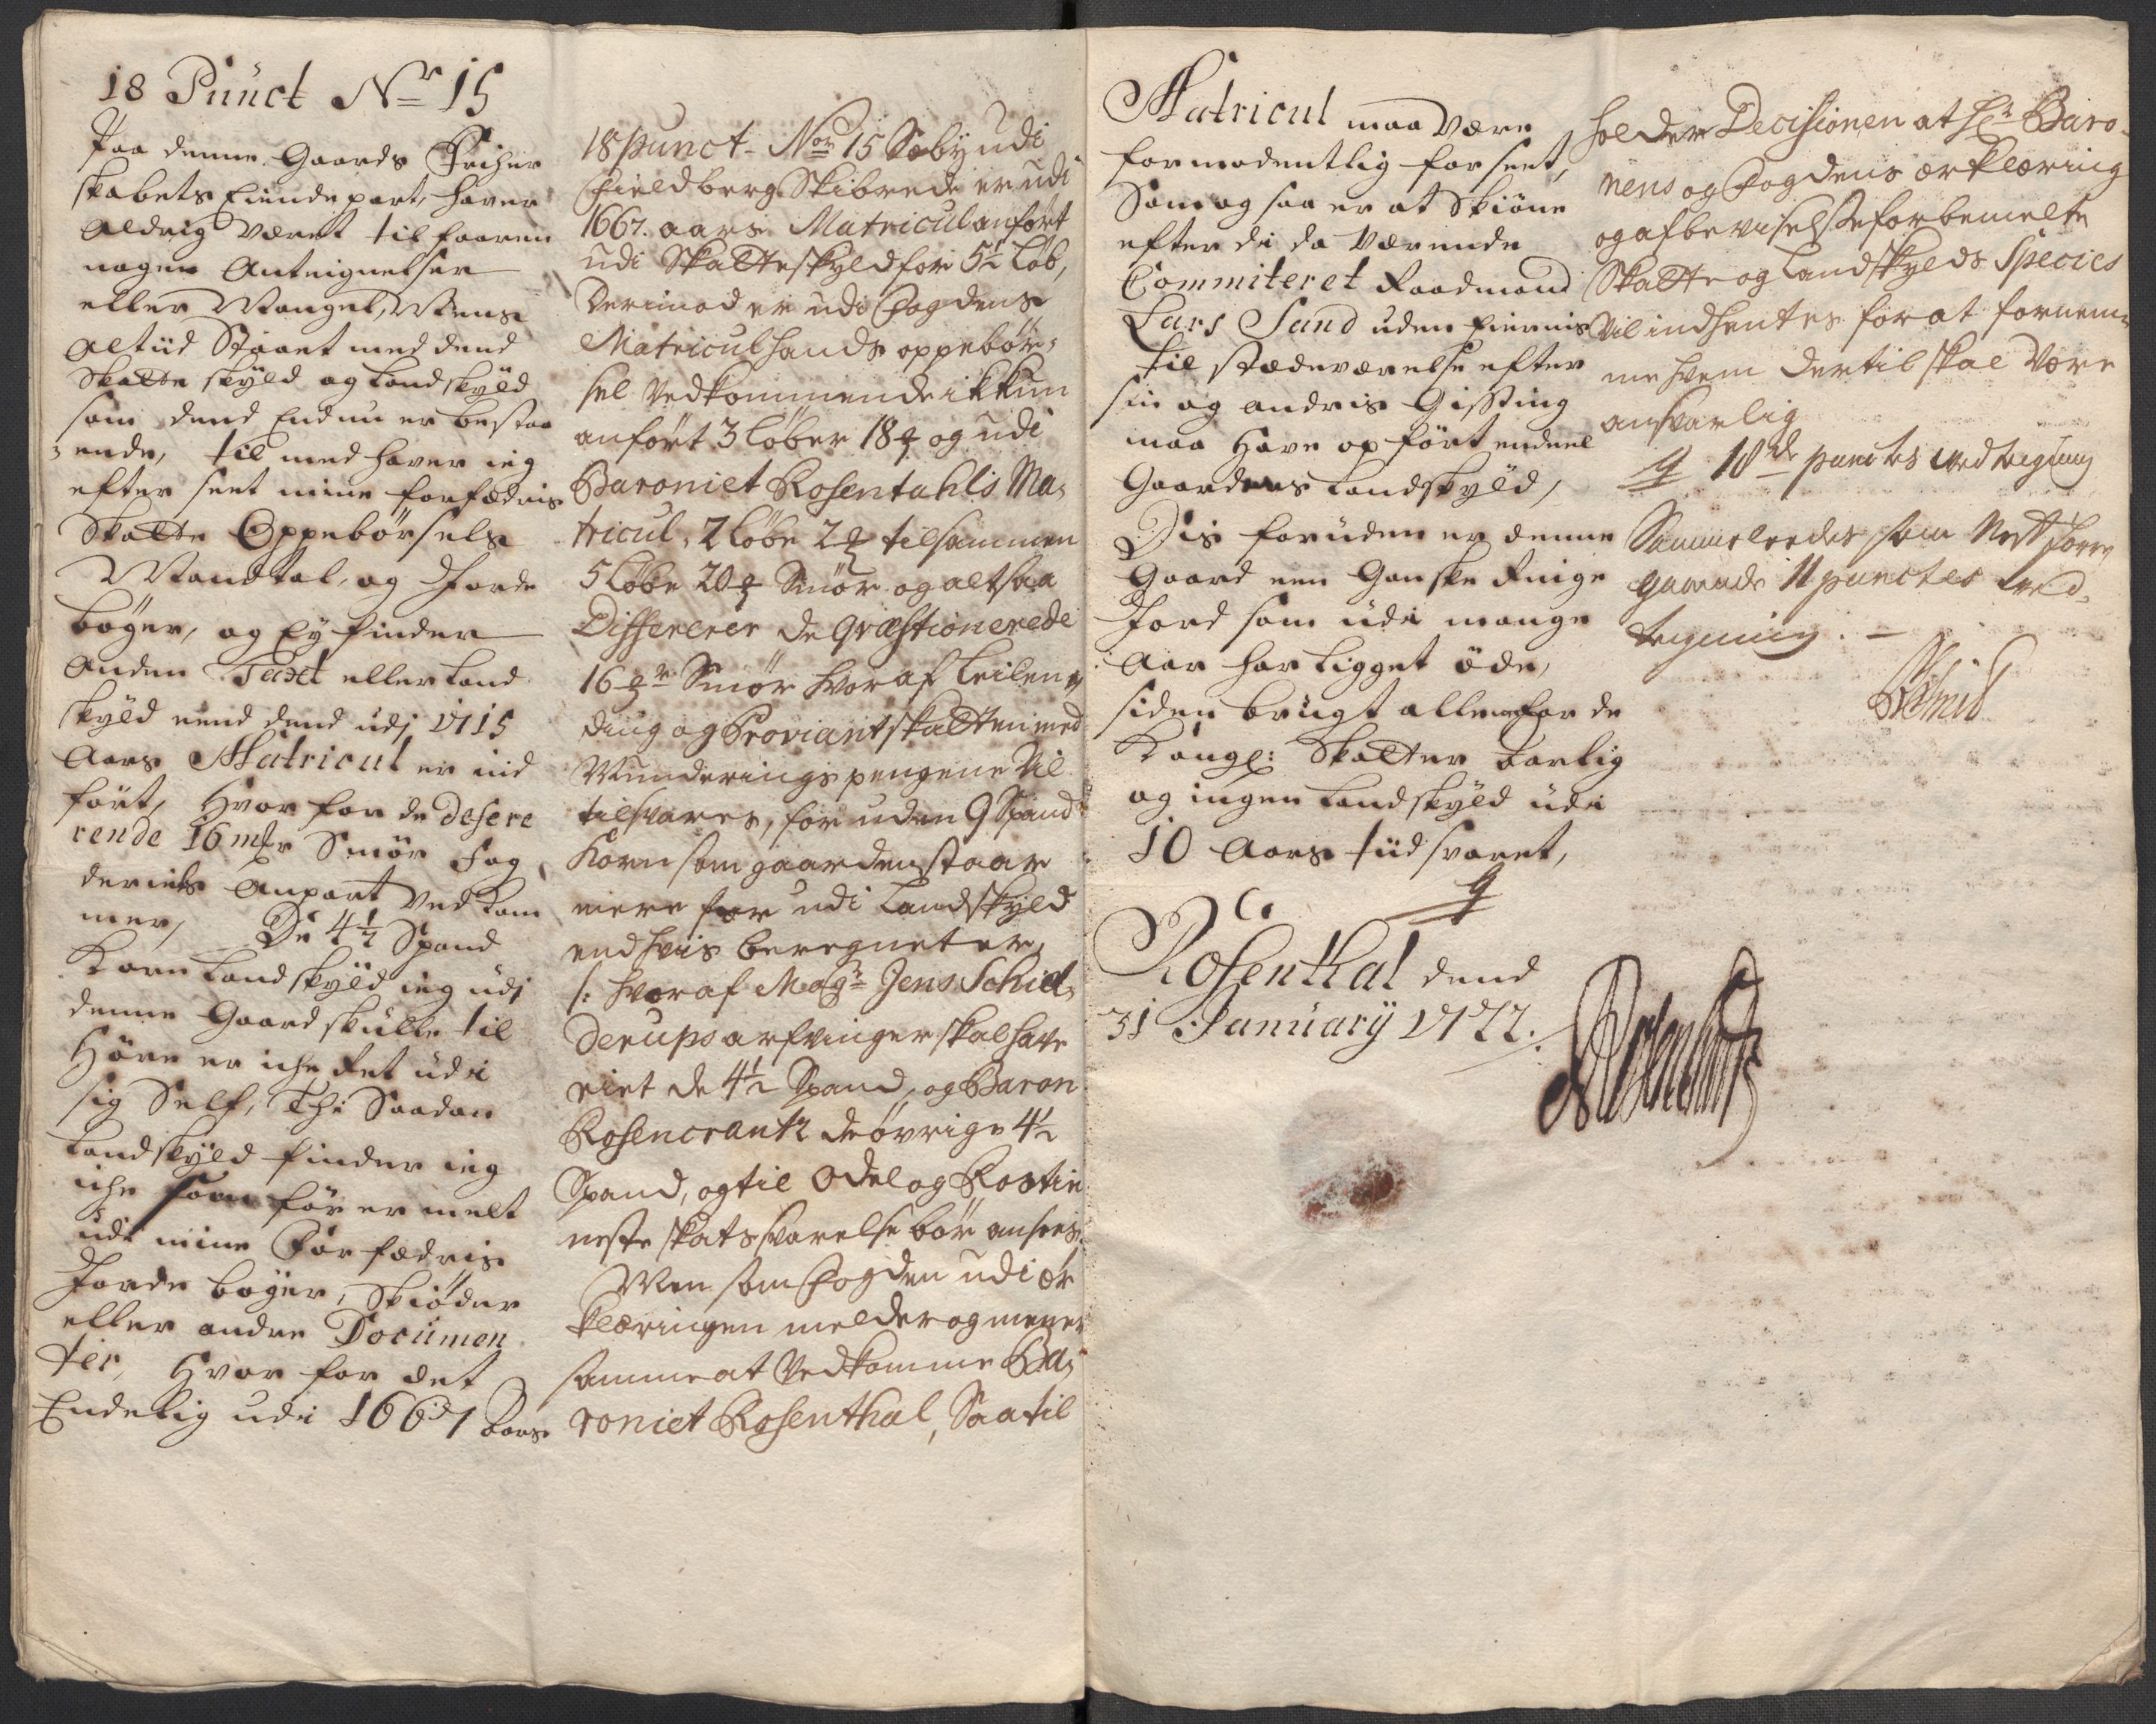 18 Punct No 15
Paa denne Gaards Friher
skabets Eiende part, haver
Aldrig været tilforen
nogen Anteignelser
eller Mangel, Mens
Altiid Staaet med dend
Skatte skyld og Landskyld
som dend End nu er bestaa
ende, til med haver ieg
efter seet mine forfædris
Skatte Oppebørsels
Mandtal, og Jorde
bøger, og Ey finder
Anden Taxt eller Land
skyld end dend udj 1715
Aars Matricul er ind
ført, Hvor for de desere
rende 16 mkr Smør Fog
deriets Anpart ved kom
mer, De 4½ Spand
Korn Landskyld ieg udj
denne Gaard skulle til
Høre er iche Ret udi
sig Self, Thi Saadan
Landskyld finder ieg
iche som før er melt
udi mine Forfædris
Jorde bøger, Skiøder
eller andre Documen
ter, Hvor for det
Endelig udi 1667 Aars
18 punct- No 15 Seby udi
Fieldberg Skibrede er udi
1667. aars Matricul anført
udi Skatteskyld for 5½ Løb,
Derimod er udi Fogdens
Matricul hands oppebør-
sel Vedkommende ikkun
anført 3 Løber 18 og udi
Baroniet Rosentahls Ma-
tricul, 2 Løbe 2 tilsammen
5 Løbe 20 Smør og altsaa
Differerer de Qvæstionerede
16 Smør hvoraf Leilen-
ding og Proviantskatten med
Munderings pengene Vil
tilsvares, for uden 9 Spand
Korn som gaarden staar
mere for udi Landskyld
end hvis beregnet er,
/: hvoraf Magr Jens Schiel-
derups arfvinger skal have
eiet de 4½ Spand, og Baron
Rosencrantz de øvrige 4½
Spand, og til Odel og Rostie
neste skats svarelse bør ansees.
Men som Fogden udi Er
klæringen melder og mener
samme at Vedkomme Ba-
roniet Rosenthal, Saa til
Matricul maa være
formodentlig forseet,
Som og saa er at Skiøne
efter di da Værende
Commiteret Raadmand
Lars Sand uden Eiernis
til stædeværelse efter
sin og andris Gissing
maa Have opført endeel
Gaarders Landskyld,
Dis foruden er denne
Gaard een Ganske Ringe
Jord som udi mange
Aar har Ligget øde,
siden brugt allene for de
Kongl: Skatter Aarlig
og ingen Landskyld udi
10 Aars tiid svaret,
Rosenthal dend
31 January 1722.
holder Decisionen at Hr Baro-
nens og Fogdens Erklæring
og afbeviselse forbemelte
Skatte og Landskylds Species
Vil indhentes for at fornem-
me hvem dertil skal Være
ansvarlig
18de puncts Vedtegning
Sammeledes som Nest forre
gaaende 11 punctes Ved-
tegning. —